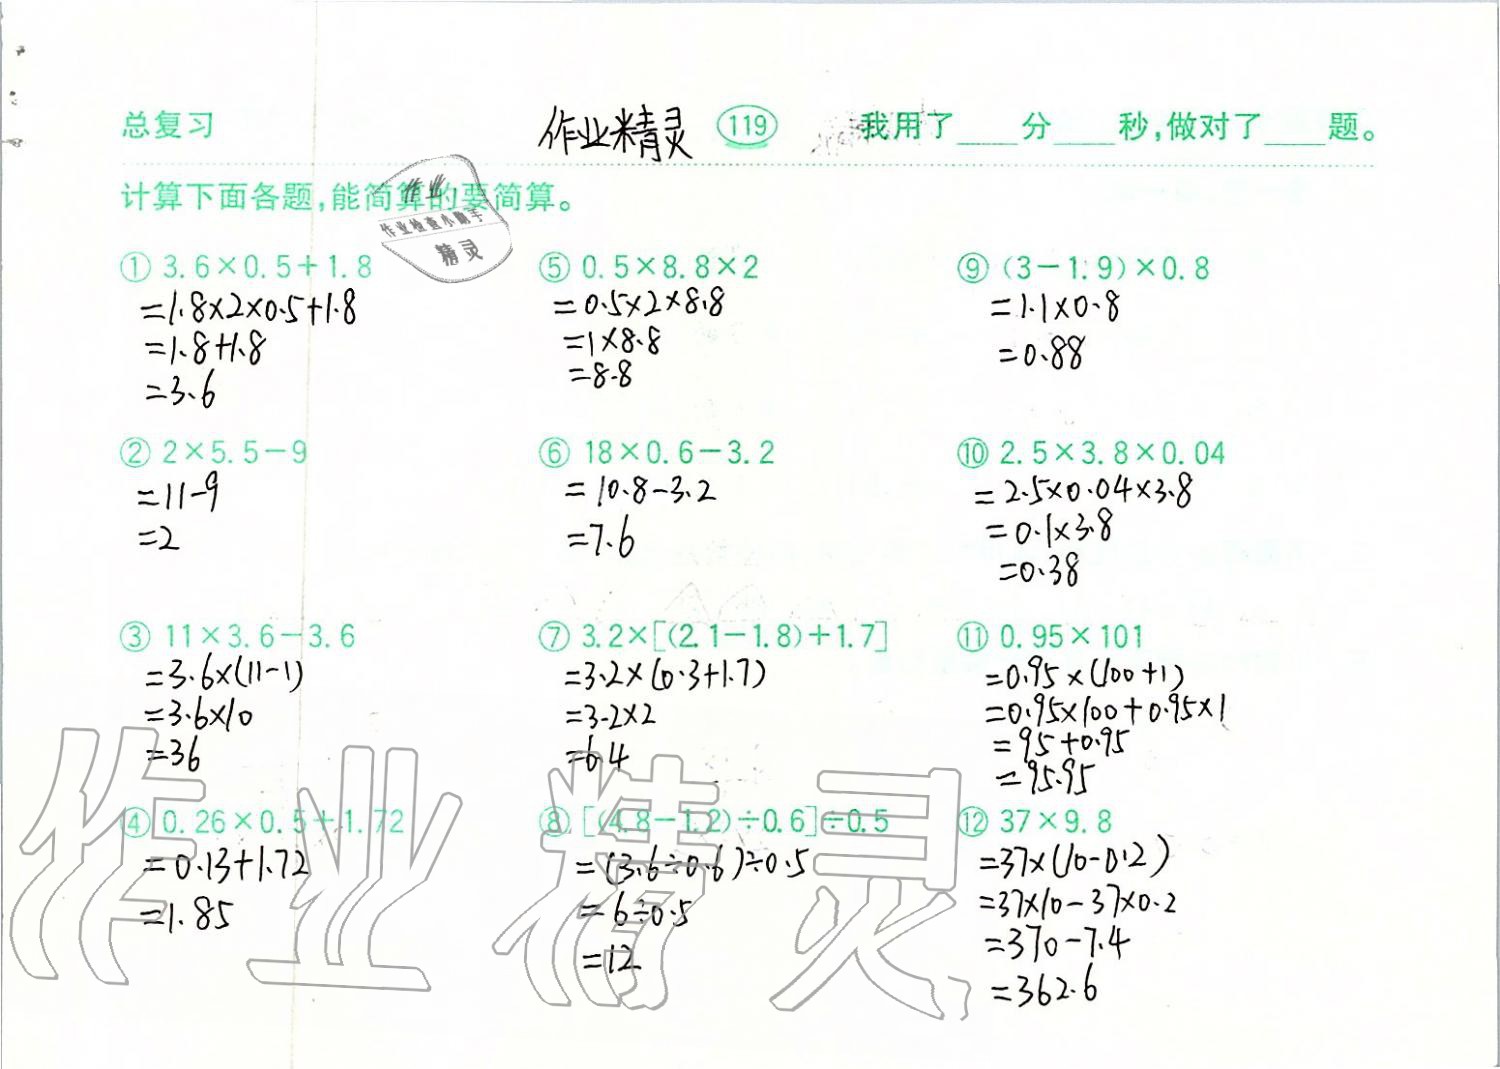 总复习 作业精灵 119 我用了____分____秒,做对了____题。
计算下面各题,能简算的要简算。
作业
作业检查小助手
精灵
① 3.6×0.5+1.8
=1.8×2×0.5+1.8
=1.8+1.8
=3.6
② 2×5.5-9
=11-9
=2
③ 11×3.6-3.6
=3.6×(11-1)
=3.6×10
=36
④ 0.26×0.5+1.72
=0.13+1.72
=1.85
⑤ 0.5×8.8×2
=0.5×2×8.8
=1×8.8
=8.8
⑥ 18×0.6-3.2
=10.8-3.2
=7.6
⑦ 3.2×[(2.1-1.8)+1.7]
=3.2×(0.3+1.7)
=3.2×2
=6.4
⑧ [(4.8-1.2)÷0.6]÷0.5
=(3.6÷0.6)÷0.5
=6÷0.5
=12
⑨ (3-1.9)×0.8
=1.1×0.8
=0.88
⑩ 2.5×3.8×0.04
=2.5×0.04×3.8
=0.1×3.8
=0.38
⑪ 0.95×101
=0.95×(100+1)
=0.95×100+0.95×1
=95+0.95
=95.95
⑫ 37×9.8
=37×(10-0.2)
=37×10-37×0.2
=370-7.4
=362.6
作业精灵